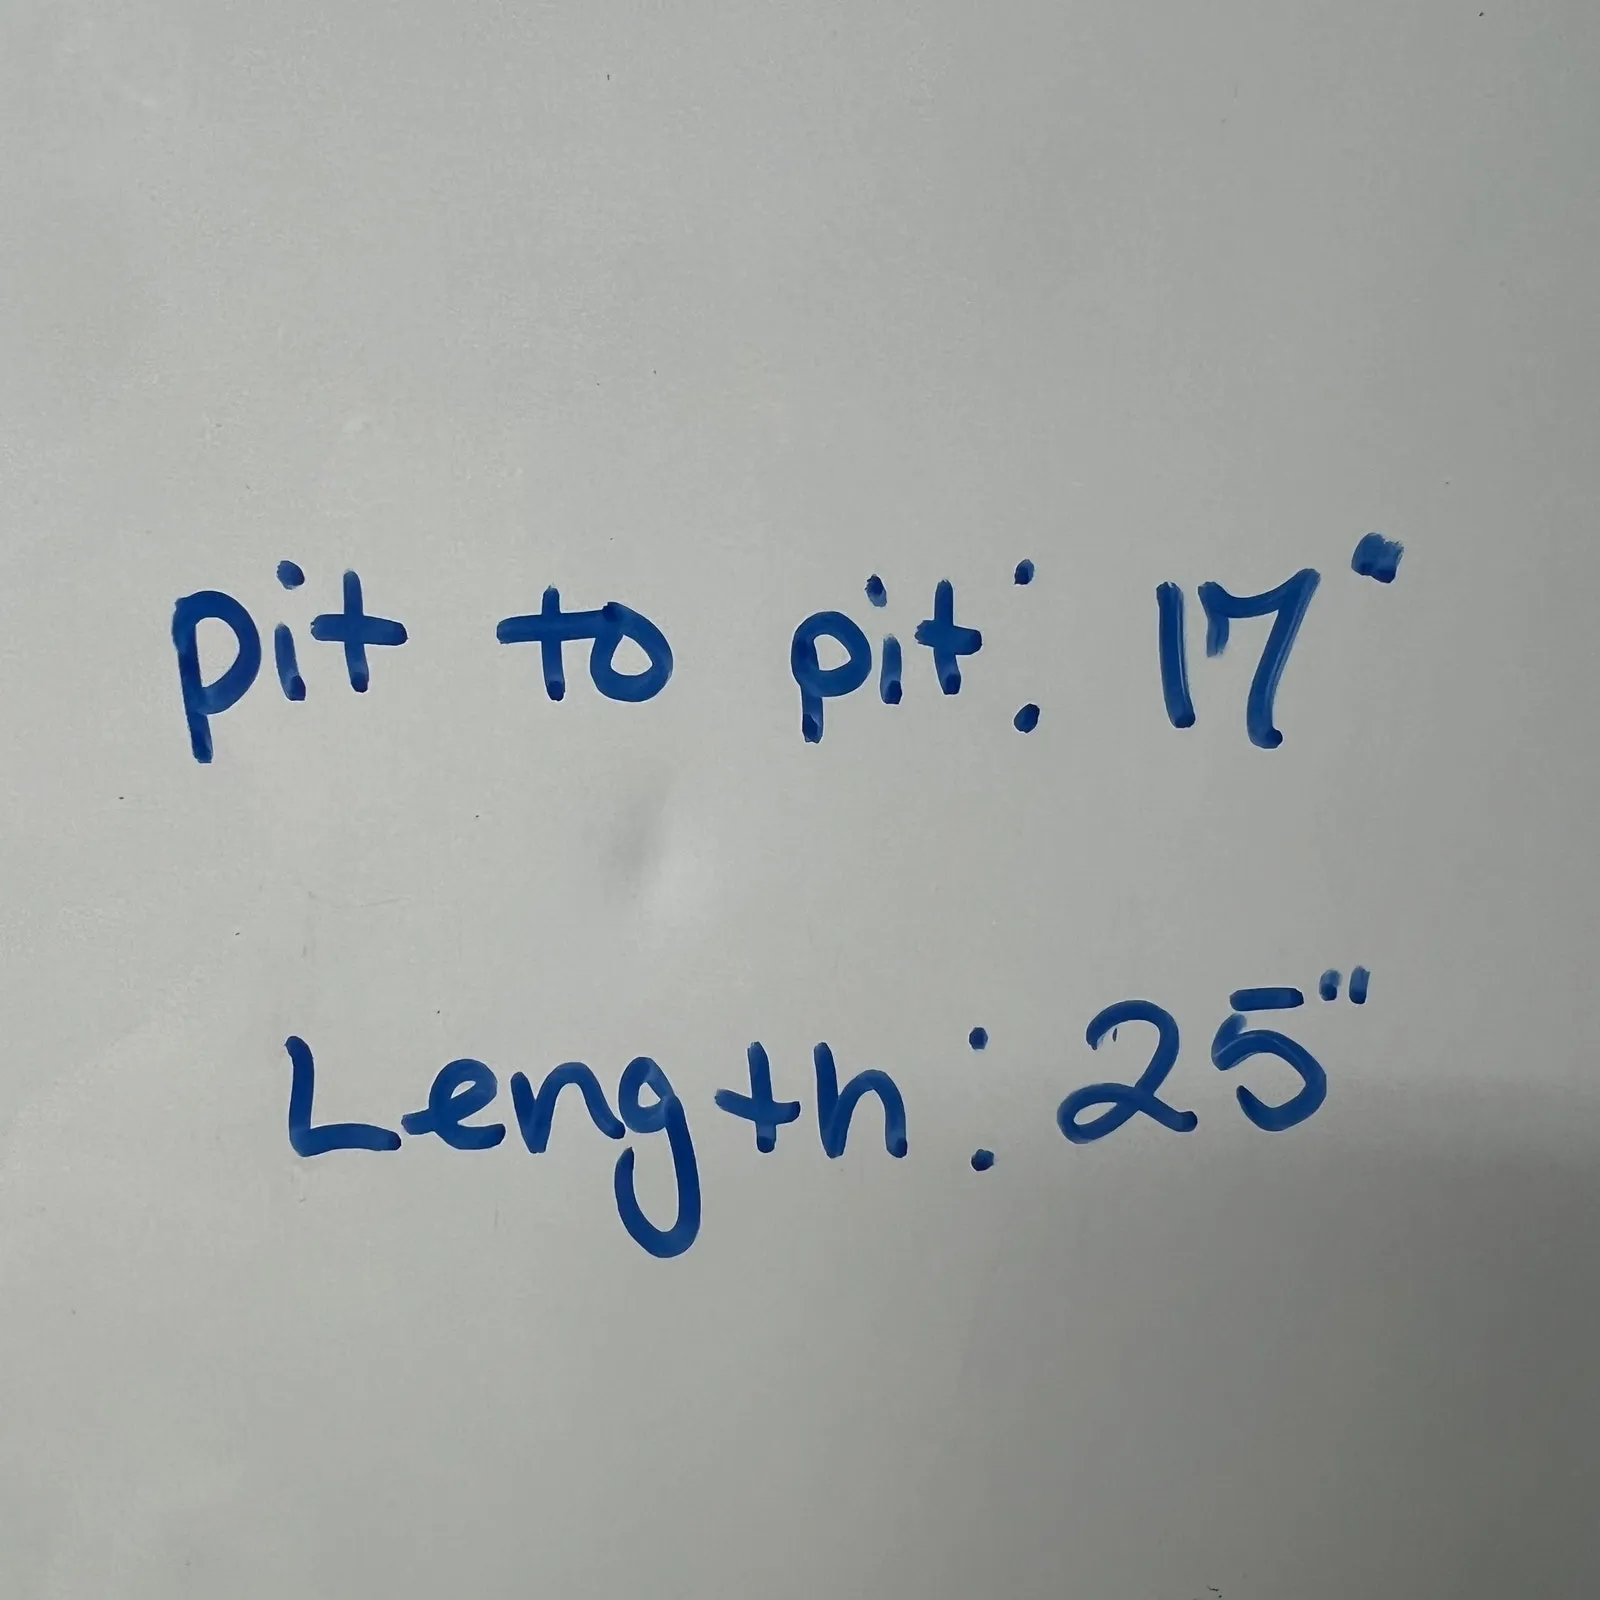 pit to pit: 17"
Length: 25"